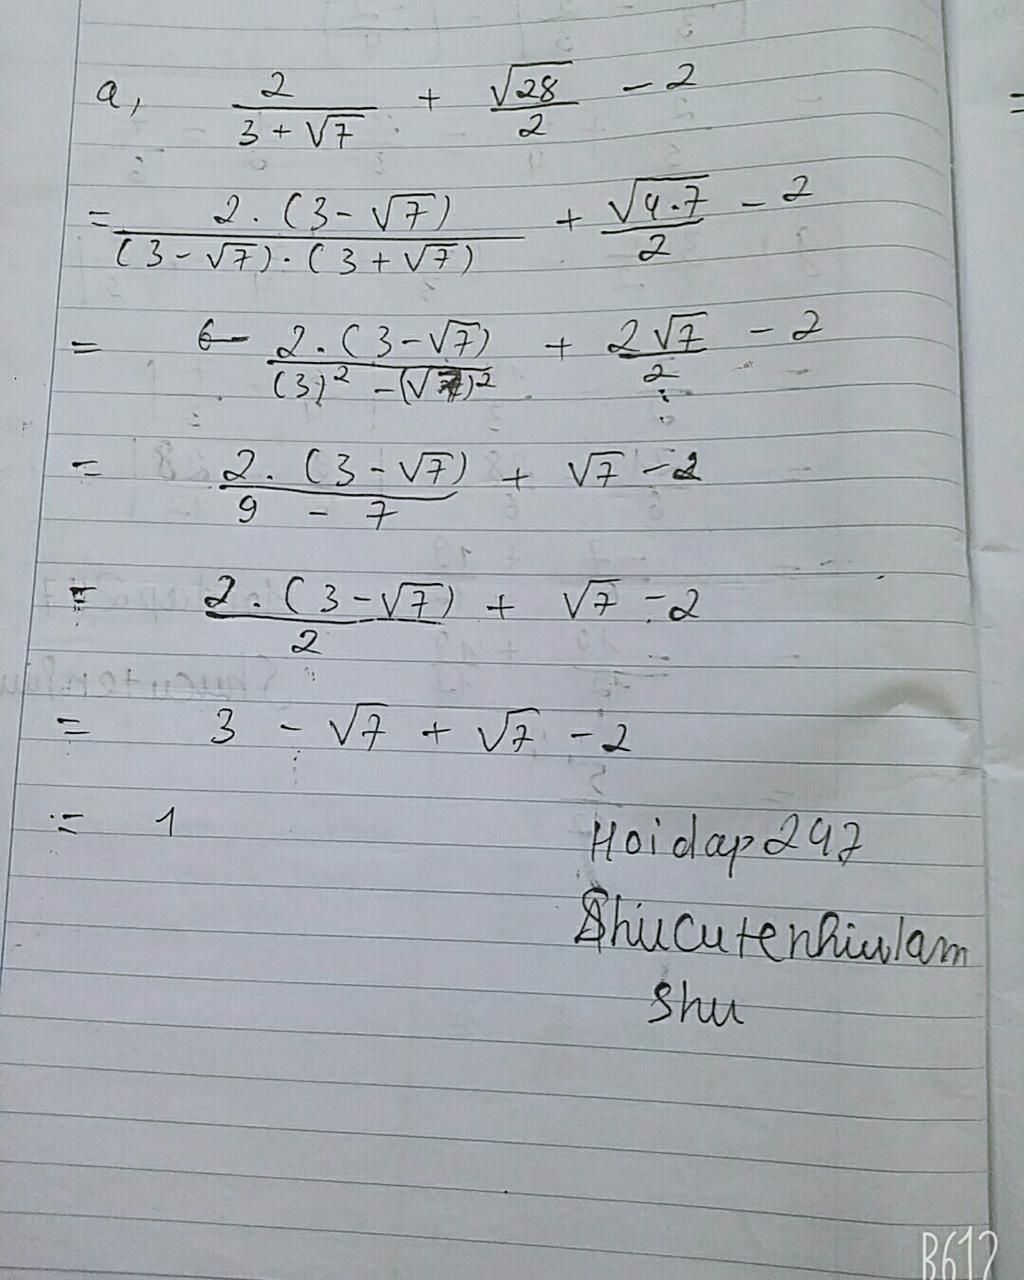 a, 2/(3 + √7) + √28/2 - 2
= 2. (3 - √7)/((3 - √7) . (3 + √7)) + √4.7/2 - 2
= 2. (3 - √7)/((3)² - (√7)²) + 2√7/2 - 2
= 2. (3 - √7)/(9 - 7) + √7 - 2
= 2. (3 - √7)/2 + √7 - 2
= 3 - √7 + √7 - 2
= 1
Hoidap247
Shucutenhiulam
Shu
B612